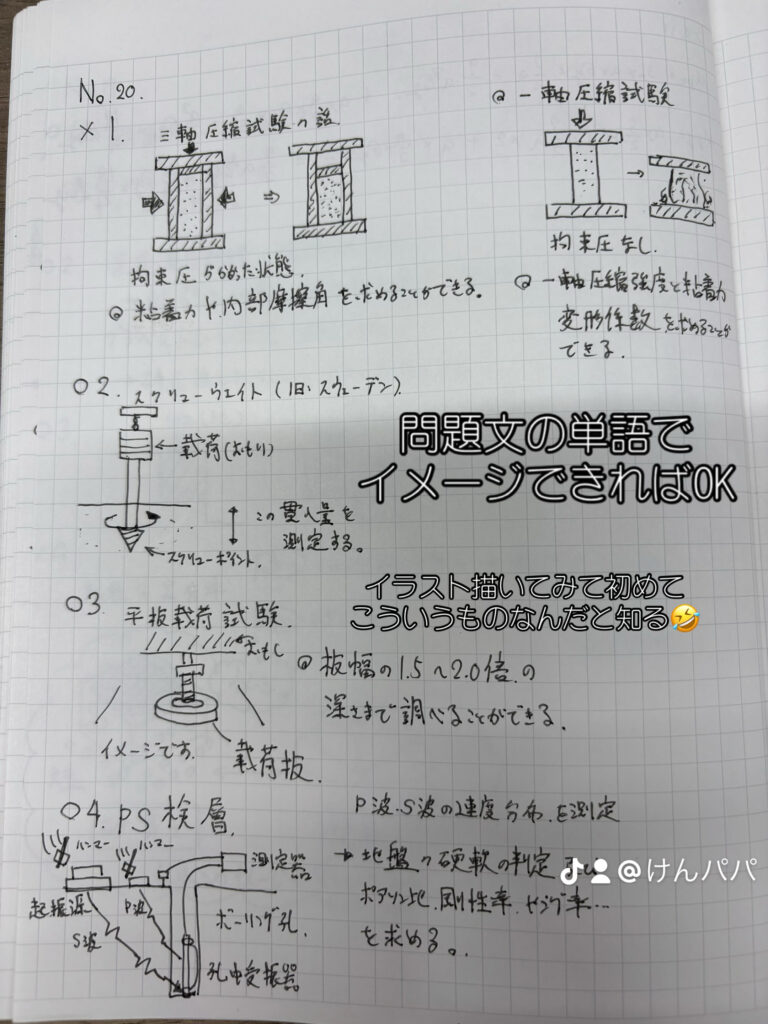 No.20.
× 1. 三軸圧縮試験の話
拘束圧らがめた状態.
◎ 粘着力や、内部摩擦角を求めることができる。
◎ 一軸圧縮試験
拘束圧なし.
◎ 一軸圧縮強度と粘着力
変形係数を求めることが
できる.
○2. スクリューウエイト (旧:スウェーデン)
載荷(おもり)
この貫入量を
測定する。
スクリューポイント.
問題文の単語で
イメージできればOK
イラスト描いてみて初めて
こういうものなんだと知る🤣
○3. 平板載荷試験.
おもし
◎ 板幅の1.5~2.0倍の
深さまで調べることができる.
イメージです.
載荷板.
○4. PS検層.
P波.S波の速度分布.を測定
ハンマー
ハンマー
測定器
→ 地盤の硬軟の判定
@けんパパ
起振源
P波
S波
ボーリング孔.
ポアソン比.剛性率.ヤング率…
を求める。.
孔中受振器